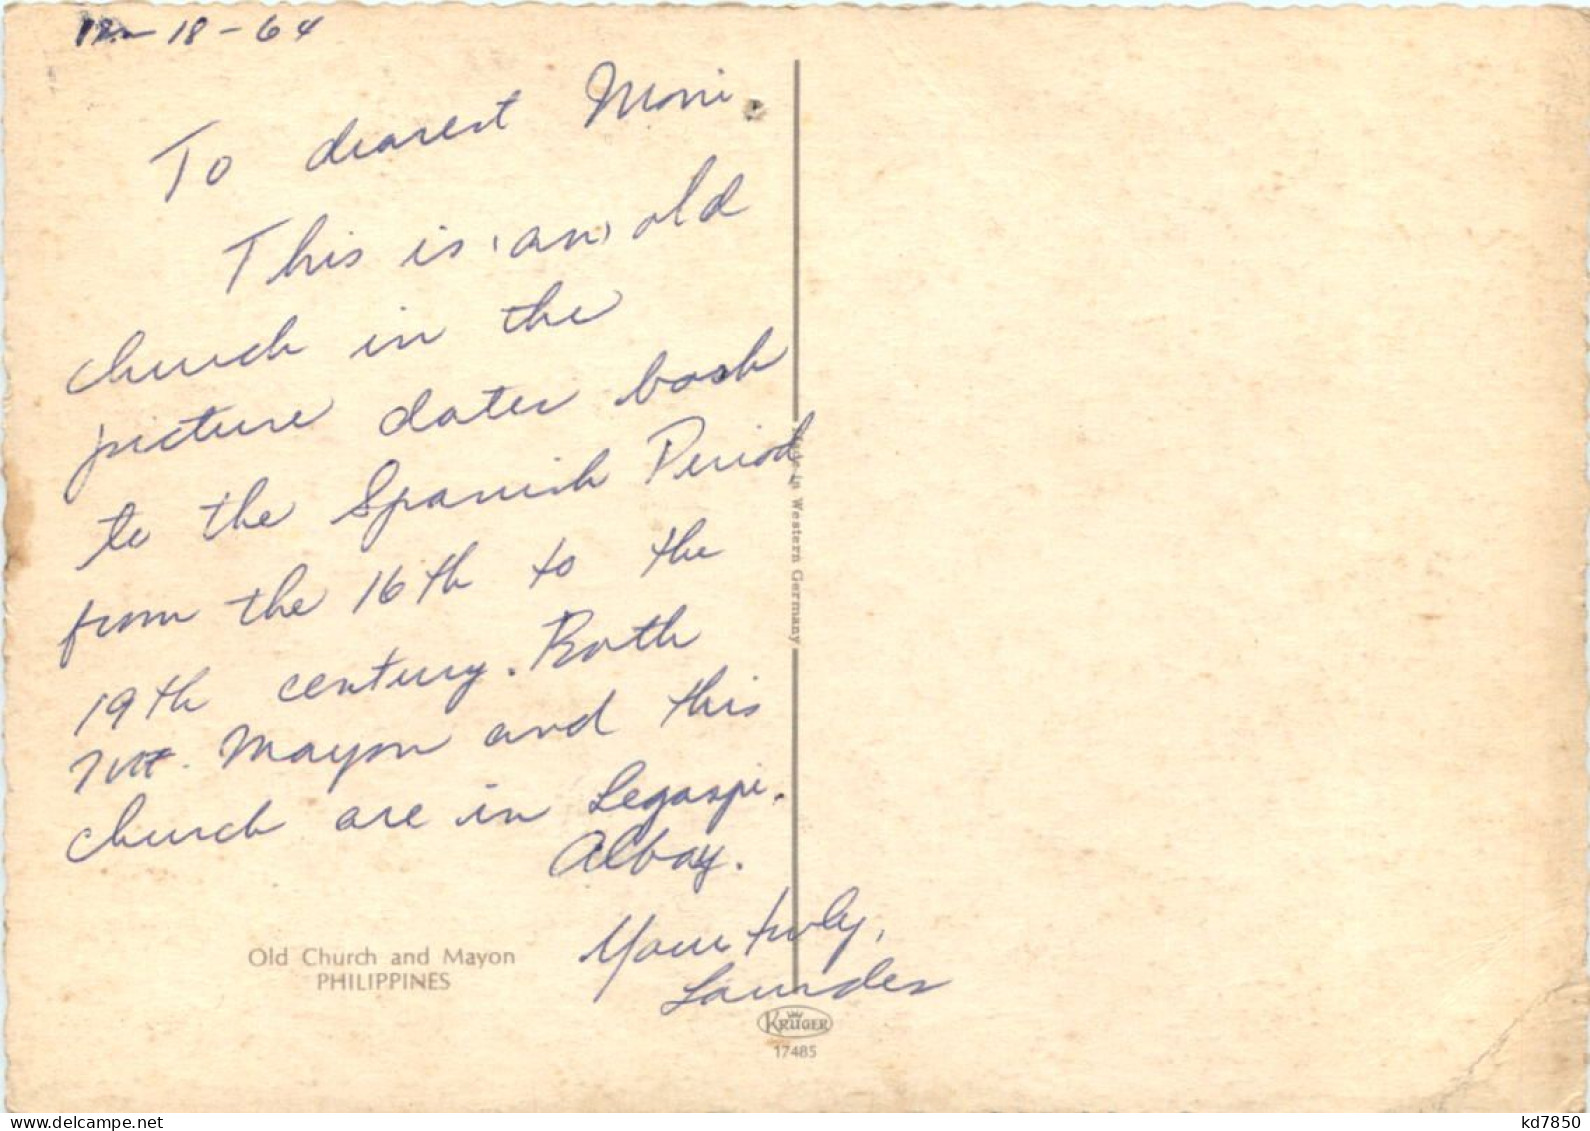 12-18-64
To dearest Moni.
This is (an) old
church in the
picture dates back
to the Spanish Period
from the 16th to the
19th century. Both
Mt. Mayon and this
church are in Legaspi.
Albay.
Yours truly,
Lourdes
Old Church and Mayon
PHILIPPINES
Made in Western Germany
KRÜGER
17485
www.delcampe.net
kd7850